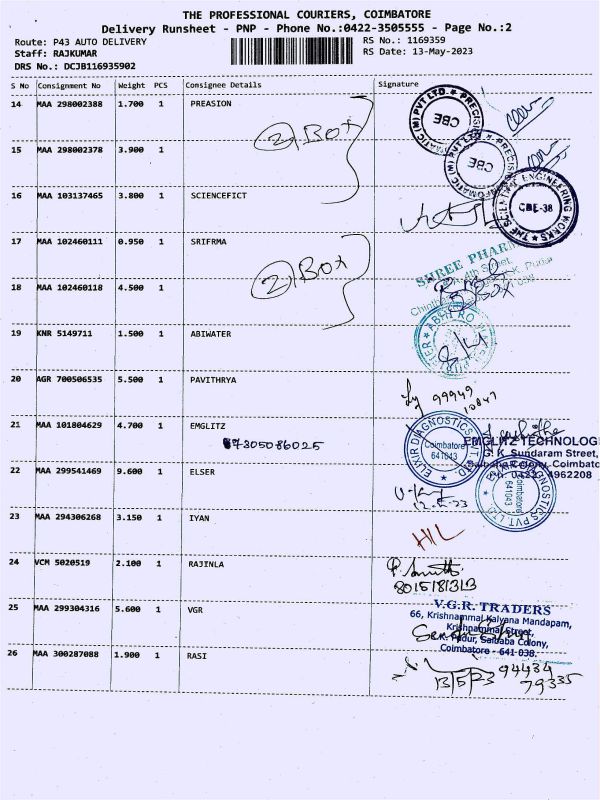 THE PROFESSIONAL COURIERS, COIMBATORE
Delivery Runsheet - PNP - Phone No.:0422-3505555 - Page No.:2
Route: P43 AUTO DELIVERY
RS No.: 1169359
Staff: RAJKUMAR
RS Date: 13-May-2023
DRS No.: DCJB116935902
S No Consignment No Weight PCS Consignee Details Signature
14 MAA 298002388 1.700 1 PREASION
2) Box
CBE
15 MAA 298002378 3.900 1
CBE
16 MAA 103137465 3.800 1 SCIENCEFICT
THE SCIENTIFIC ENGINEERING WORKS
CBE-38
17 MAA 102460111 0.950 1 SRIFRMA
2) Box
SHREE PHAR
4th Street,
18 MAA 102460118 4.500 1
Box
19 KNR 5149711 1.500 1 ABIWATER
20 AGR 700506535 5.500 1 PAVITHRYA
99949
10847
21 MAA 101804629 4.700 1 EMGLITZ
7305086025
ELIXIR DIAGNOSTICS PVT LTD
Coimbatore
641043
EMGLITZ TECHNOLOG
G. K. Sundaram Street,
Saibaba Colony, Coimbato
4962208
22 MAA 299541469 9.600 1 ELSER
DIAGNOSTICS PVT LTD
Coimbatore
641043
23 MAA 294306268 3.150 1 IYAN
24 VCM 5020519 2.100 1 RAJINLA
8015181313
25 MAA 299304316 5.600 1 VGR
V.G.R. TRADERS
66, Krishnammal Kalyana Mandapam,
Krishnammal Street,
Pudur, Saibaba Colony,
Coimbatore - 641 038.
26 MAA 300287088 1.900 1 RASI
13/5/23 94434
79335